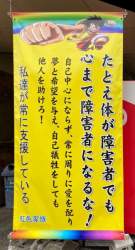 たとえ体が障害者でも
心まで障害者になるな!
自己中心にならず、常に周りに愛を配り
夢と希望を与え、自己犠牲をしても
他人を助けろ!
私達が常に支援している
虹色家族